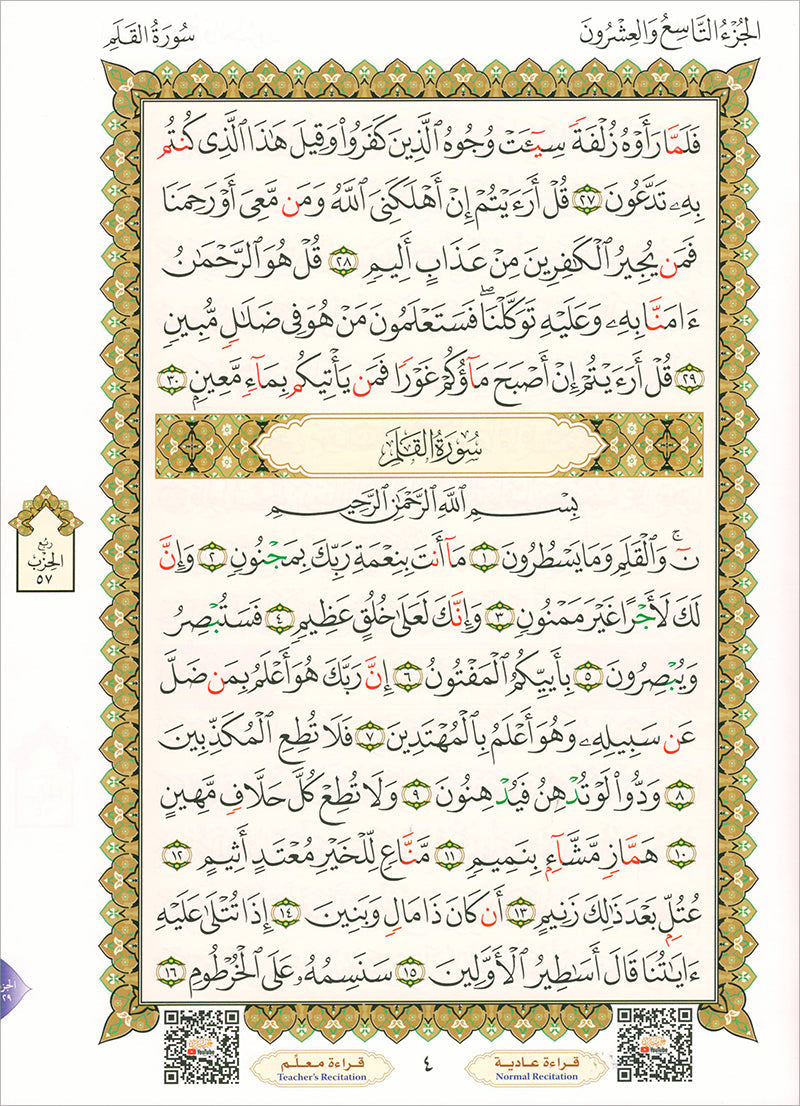 الجُزْءُ التَّاسِعُ وَالعِشْرُونَ
سُورَةُ القَلَمِ
فَلَمَّا رَأَوْهُ زُلْفَةً سِيٓـَٔتْ وُجُوهُ ٱلَّذِينَ كَفَرُوا۟ وَقِيلَ هَٰذَا ٱلَّذِى كُنتُم
بِهِۦ تَدَّعُونَ ٢٧ قُلْ أَرَءَيْتُمْ إِنْ أَهْلَكَنِىَ ٱللَّهُ وَمَن مَّعِىَ أَوْ رَحِمَنَا
فَمَن يُجِيرُ ٱلْكَٰفِرِينَ مِنْ عَذَابٍ أَلِيمٍ ٢٨ قُلْ هُوَ ٱلرَّحْمَٰنُ
ءَامَنَّا بِهِۦ وَعَلَيْهِ تَوَكَّلْنَا ۖ فَسَتَعْلَمُونَ مَنْ هُوَ فِى ضَلَٰلٍ مُّبِينٍ
٢٩ قُلْ أَرَءَيْتُمْ إِنْ أَصْبَحَ مَآؤُكُمْ غَوْرًا فَمَن يَأْتِيكُم بِمَآءٍ مَّعِينٍ ٣٠
سُورَةُ القَلَمِ
بِسْمِ ٱللَّهِ ٱلرَّحْمَٰنِ ٱلرَّحِيمِ
نٓ ۚ وَٱلْقَلَمِ وَمَا يَسْطُرُونَ ١ مَآ أَنتَ بِنِعْمَةِ رَبِّكَ بِمَجْنُونٍ ٢ وَإِنَّ
لَكَ لَأَجْرًا غَيْرَ مَمْنُونٍ ٣ وَإِنَّكَ لَعَلَىٰ خُلُقٍ عَظِيمٍ ٤ فَسَتُبْصِرُ
وَيُبْصِرُونَ ٥ بِأَييِّكُمُ ٱلْمَفْتُونُ ٦ إِنَّ رَبَّكَ هُوَ أَعْلَمُ بِمَن ضَلَّ
عَن سَبِيلِهِۦ وَهُوَ أَعْلَمُ بِٱلْمُهْتَدِينَ ٧ فَلَا تُطِعِ ٱلْمُكَذِّبِينَ
٨ وَدُّوا۟ لَوْ تُدْهِنُ فَيُدْهِنُونَ ٩ وَلَا تُطِعْ كُلَّ حَلَّافٍ مَّهِينٍ
١٠ هَمَّازٍ مَّشَّآءٍۭ بِنَمِيمٍ ١١ مَّنَّاعٍ لِّلْخَيْرِ مُعْتَدٍ أَثِيمٍ ١٢
عُتُلٍّۭ بَعْدَ ذَٰلِكَ زَنِيمٍ ١٣ أَن كَانَ ذَا مَالٍ وَبَنِينَ ١٤ إِذَا تُتْلَىٰ عَلَيْهِ
ءَايَٰتُنَا قَالَ أَسَٰطِيرُ ٱلْأَوَّلِينَ ١٥ سَنَسِمُهُۥ عَلَى ٱلْخُرْطُومِ ١٦
رُبْع
الحِزْب
٥٧
الجزء
٢٩
قراءة عادية
Normal Recitation
٤
قراءة معلّم
Teacher's Recitation
YouTube
YouTube